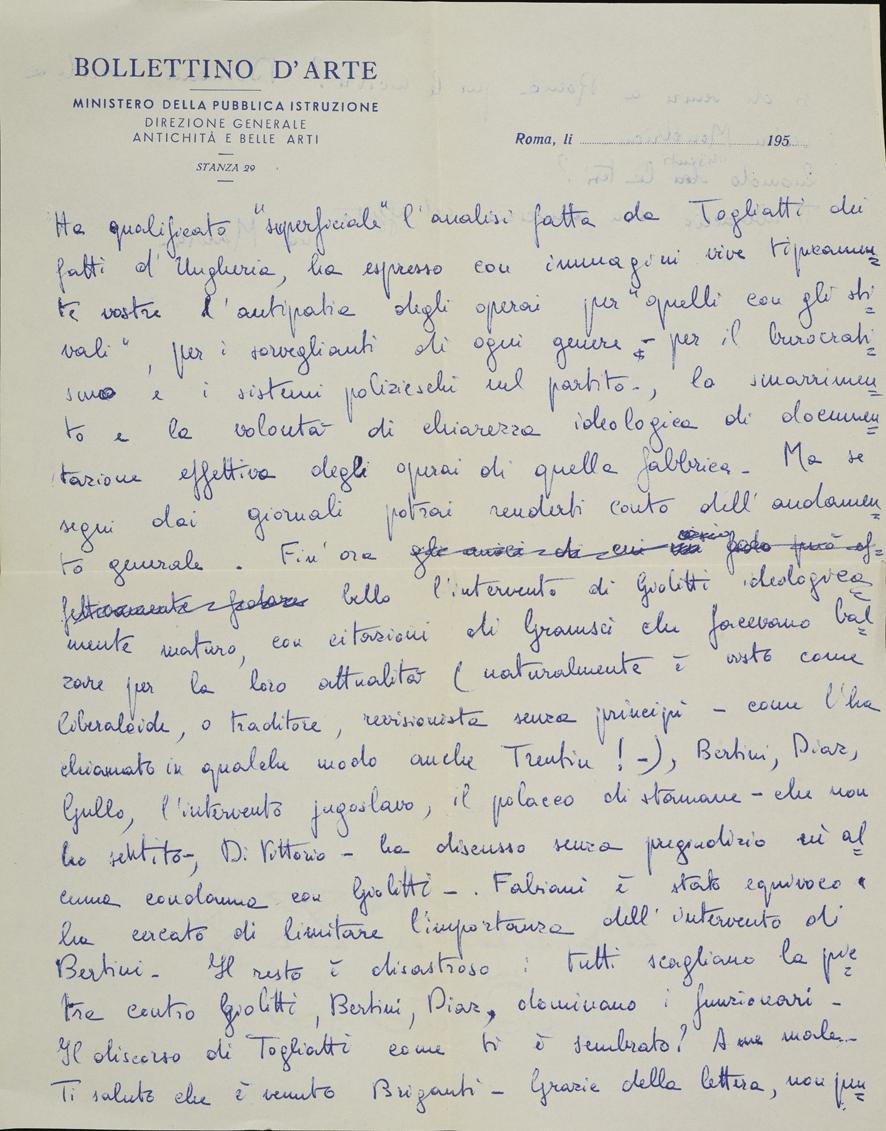 BOLLETTINO D'ARTE
MINISTERO DELLA PUBBLICA ISTRUZIONE
DIREZIONE GENERALE
ANTICHITÀ E BELLE ARTI
STANZA 29
Roma, li 195
Ha qualificato "superficiale" l'analisi fatta da Togliatti dei
fatti d'Ungheria, ha espresso con immagini vive tipicamen=
te vostre l'antipatia degli operai per "quelli con gli sti=
vali", per i sorveglianti di ogni genere - per il burocrati=
smo e i sistemi polizieschi nel partito -, lo smarrimen=
to e la volontà di chiarezza ideologica di documen=
tazione effettiva degli operai di quella fabbrica - Ma se
segui dai giornali potrai renderti conto dell'andamen=
to generale. Fin'ora gli amici di cui può ef=
fettivamente
bello l'intervento di Giolitti ideologica=
mente maturo, con citazioni di Gramsci che facevano bal=
zare per la loro attualità (naturalmente è visto come
liberaloide, o traditore, revisionista senza principi - come l'ha
chiamato in qualche modo anche Trentin! -), Bertini, Diaz,
Gullo, l'intervento jugoslavo, il polacco di stamane - che non
ho sentito -, Di Vittorio - ha discusso senza pregiudizio nè al=
cuna condanna con Giolitti -. Fabiani è stato equivoco e
ha cercato di limitare l'importanza dell'intervento di
Bertini - Il resto è disastroso: tutti scagliano la pie=
tra contro Giolitti, Bertini, Diaz, dominano i funzionari -
Il discorso di Togliatti come ti è sembrato? A me male -
Ti saluto che è venuto Briganti - Grazie della lettera, non pen=